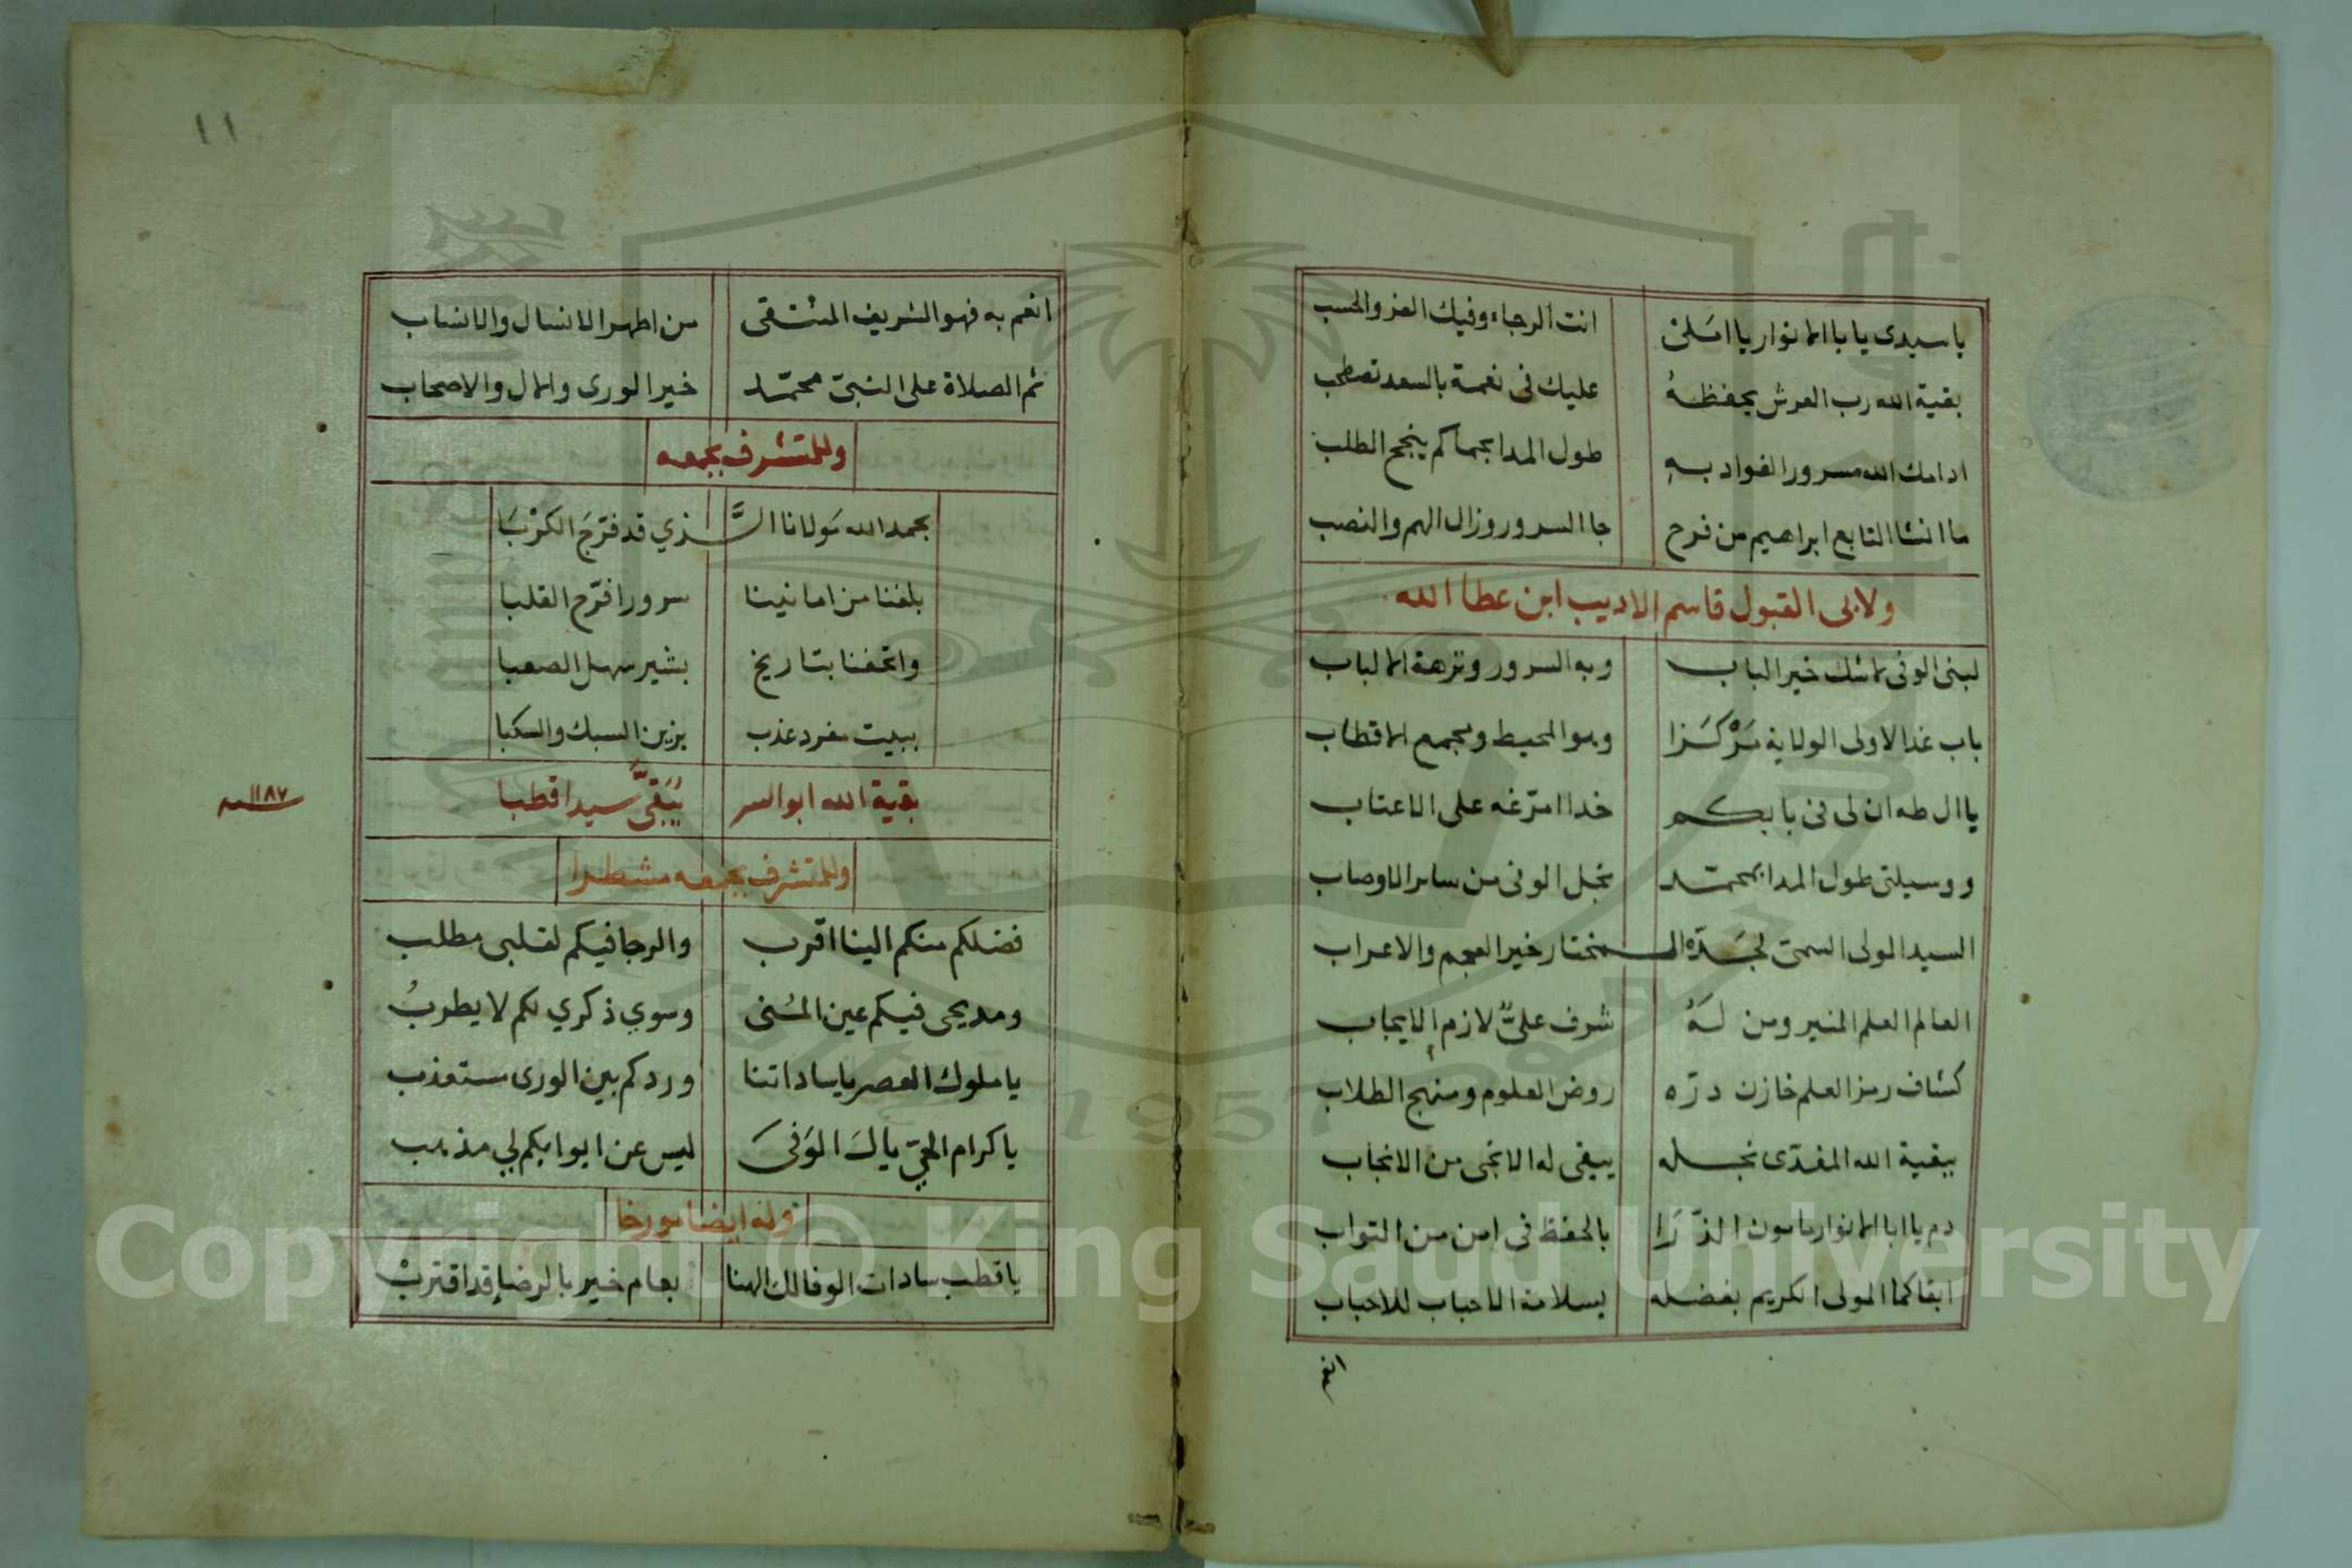 يا سيدى يا با الانوار يا املى انت الرجاء وفيك العز والحسب
بقية الله رب العرش يحفظهُ عليك فى نعمة بالسعد تصطحب
ادامك الله مسرور الفواد به طول المدا بحماكم ينجح الطلب
ما انشا التابع ابراهيم من فرح جا السرور وزال الهم والنصب
ولابى القبول قاسم الاديب ابن عطا الله
لبنى الوفى لا شك خير الباب وبه السرور ونزهة الالباب
باب غدا لاولى الولاية مَرْكَزا وهو المحيط ومجمع الاقطاب
يا ال طه ان لى فى بابكم خدا امرّغه على الاعتاب
ووسيلتى طول المدا بمحمّد نجل الوفى من ساىر الاوصاب
السيد المولى السمىّ لجَدّه المختار خير العجم والاعراب
العالم العلم المنير ومن لهُ شرف علىّ لازم الايجاب
كشاف رمز العلم خازن درّه روض العلوم ومنهج الطلاب
ببقية الله المفدّى نجله يبقى له الانجى من الانجاب
دم يا ابا الانوار مامون الذّرَا بالحفظ فى امن من التواب
ابقاكما المولى الكريم بفضله بسلامة الاحباب للاحباب
انعم
١١
انعم به فهو الشريف المنتقى من اطهر الانسال والانساب
ثم الصلاة على النبىّ محمّد خير الورى والال والاصحاب
وللمتشرف بجمعه
بحمد الله مَولانا الَّذي قد فرّجَ الكرْبَا
بلغنا من امانينا سرورا فرّح القلبا
واتحفنا بتاريخ بشير سهل الصعبا
ببيت مفرد عذب يزين السبك والسكبا
بقية الله ابو السر يُبَقَّى سيدا قطبا
١١٨٧ سنه
وللمتشرف بجمعه مشطرا
فضلكم منكم الينا اقرب والرجا فيكم لقلبى مطلب
ومديحى فيكم عين المُنى وسوي ذكري لكم لا يطربُ
يا ملوك العصر يا ساداتنا وردكم بين الورى مستعذب
يا كرام الحىّ يا الَ الوَفىَ ليس عن ابوابكم لي مذهب
وله ايضا مورخا
يا قطب سادات الوفا لك الهنا بعام خير بالرضا قد اقتربْ
Copyright © King Saud University
1957